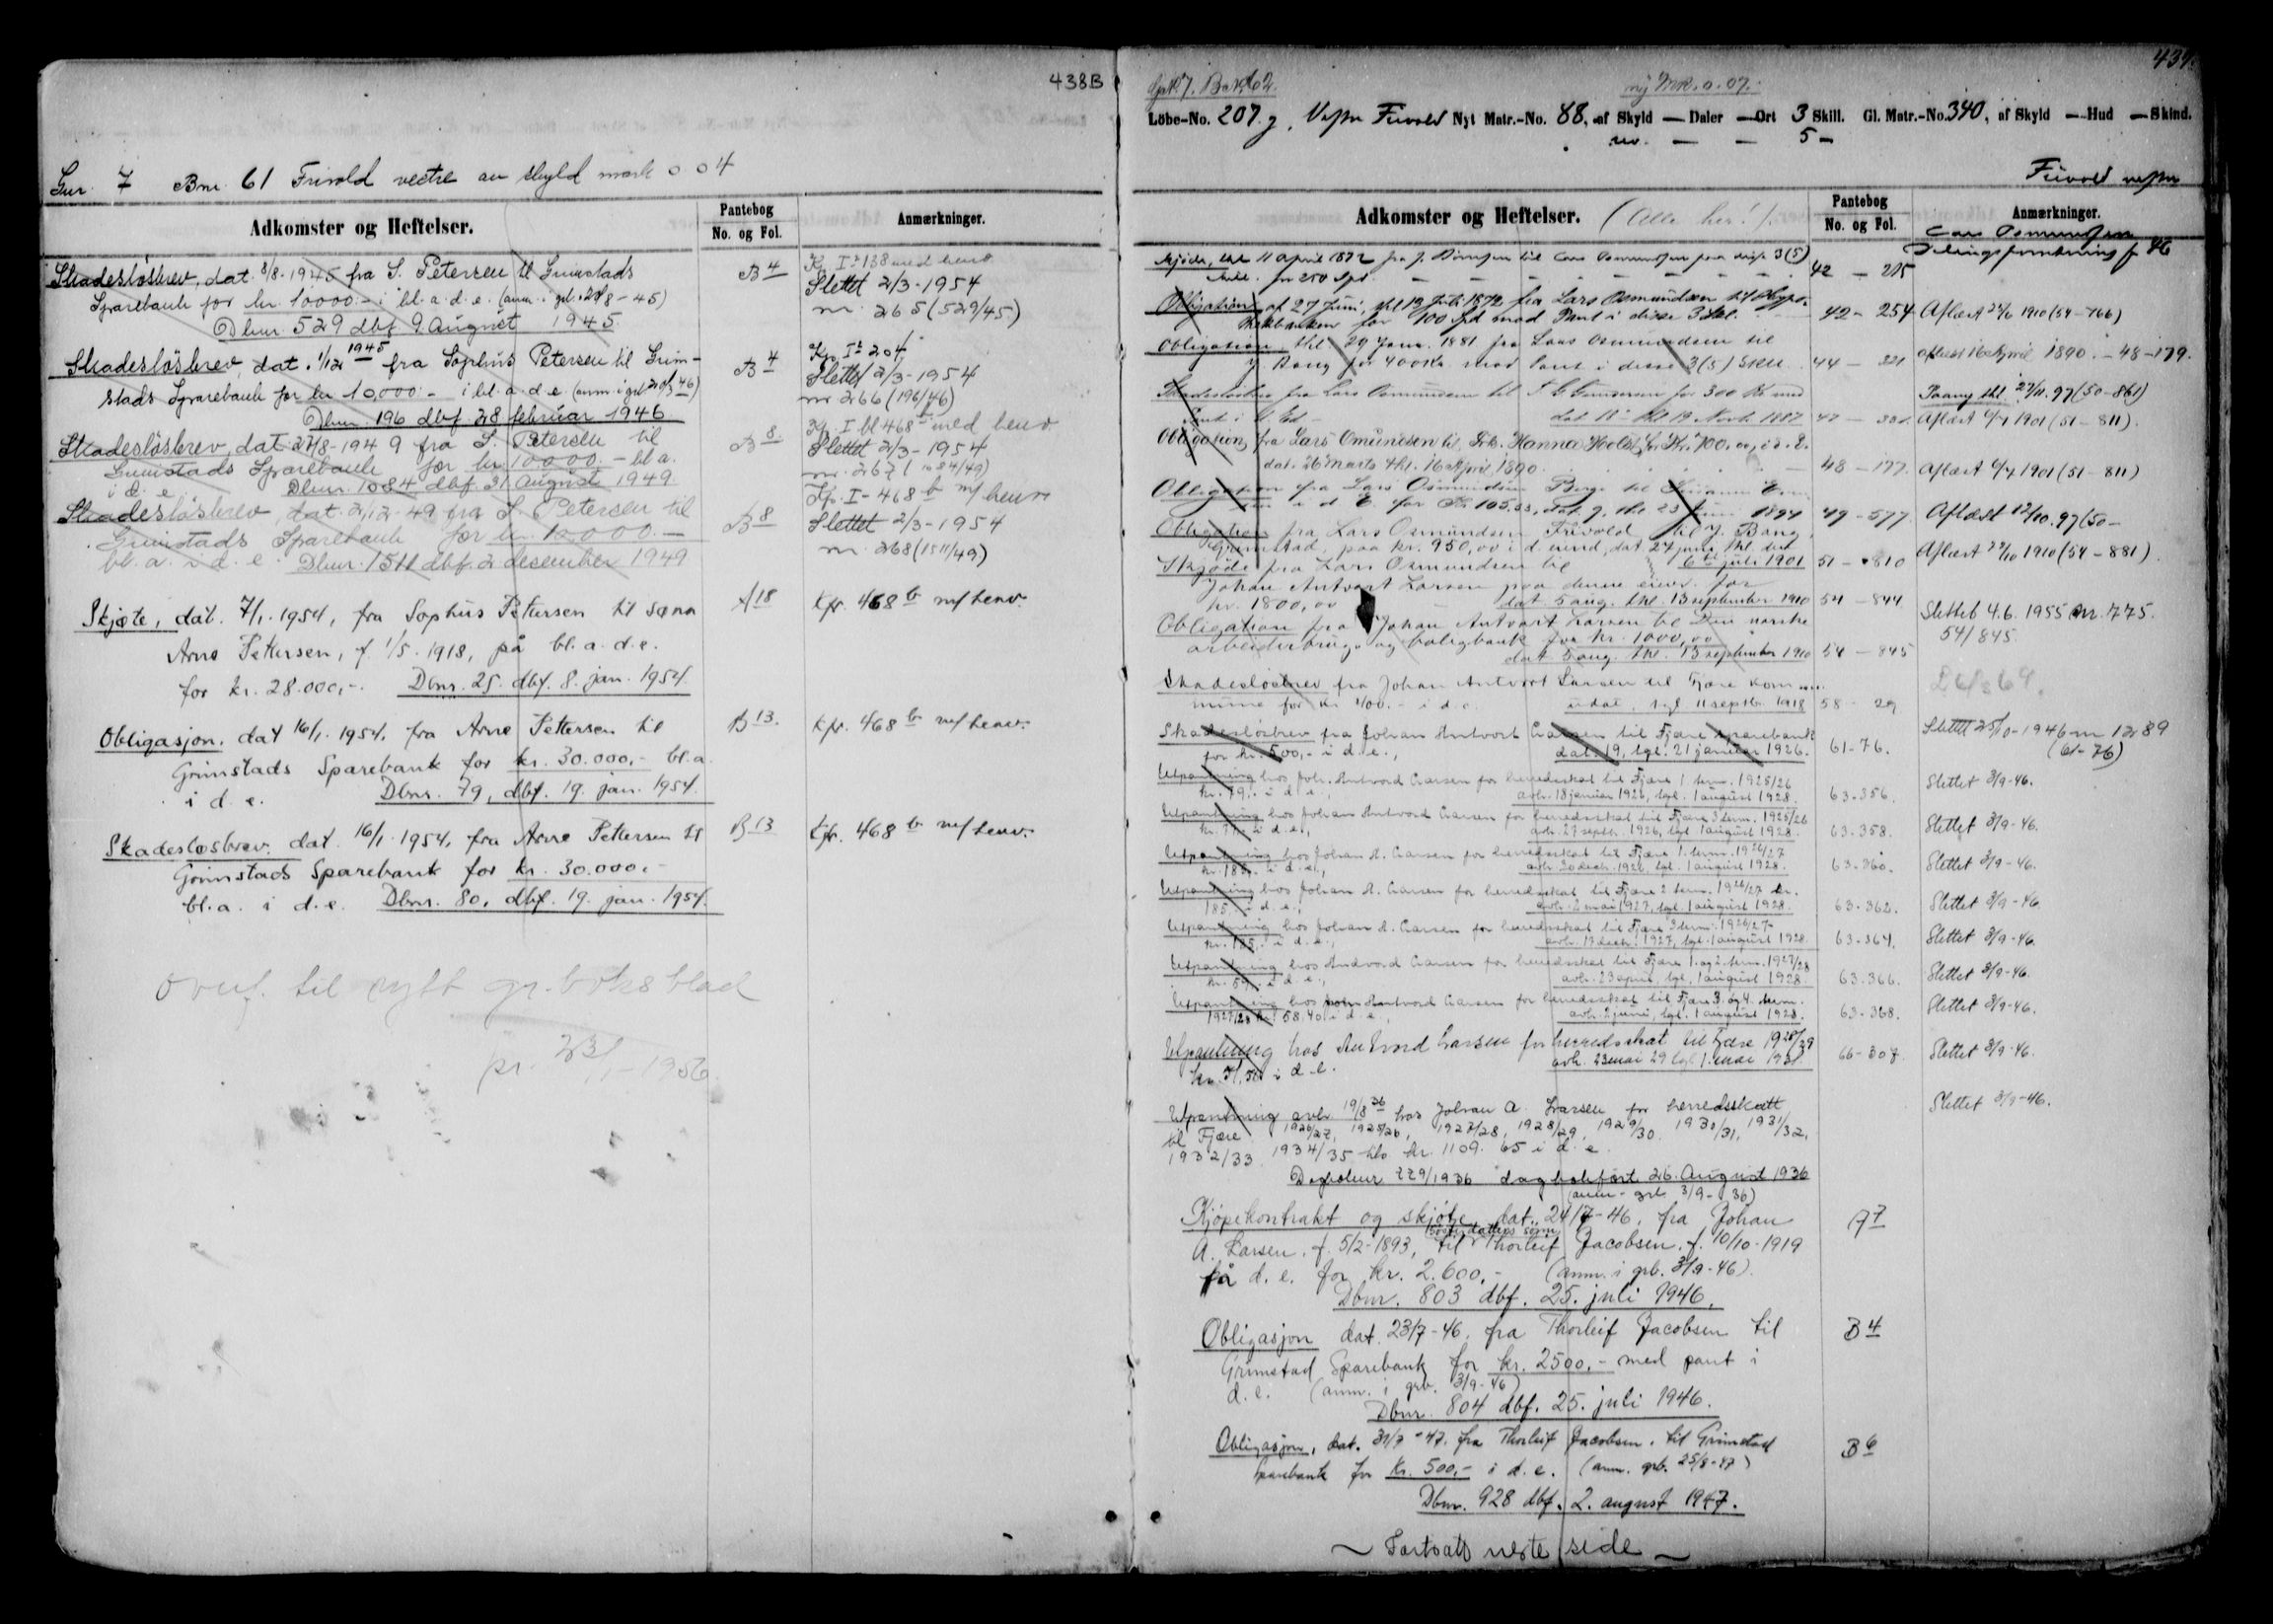 438B
Gnr. 7 Bnr. 61 Frivold vestre av skyld mark 0 04
Adkomster og Heftelser.
Pantebog
No. og Fol.
Anmærkninger.
Skadesløsbrev, dat. 8/8-1945 fra S. Petersen til Grimstads
Sparebank for kr. 10000.- i bl.a. d.e.
Dbnr. 529 dbf 9 August 1945.
B 4
Slettet 2/3-1954
nr. 265 (529/45)
Skadesløsbrev, dat. 1/12 1945 fra Sophus Petersen til Grim-
stads Sparebank for kr 10,000.- i bl. a. d. e.
Dbnr. 196 dbf 28 februar 1946
B 4
Kp. I b 204
Slettet 2/3-1954
nr 266 (196/46)
Skadesløsbrev, dat. 27/8-1949 fra S. Petersen til
Grimstads Sparebank for kr. 10000.- bl a.
i d. e. Dbnr. 1084 dbf. 31 August 1949.
B 8.
Kp. I bl 468 b med henv
Slettet 2/3-1954
nr. 267 (1084/49)
Skadesløsbrev, dat. 2/12-49 fra S. Petersen til
Grimstads Sparebank for kr. 10.000.-
bl. a. i d. e. Dbnr. 1511 dbf. 2 desember 1949
B 8
Kp. I - 468 b m/henv
Slettet 2/3-1954
nr. 268 (1511/49)
Skjøte, dat. 7/1.1954, fra Sophus Pettersen til sønn
Arne Pettersen, f. 1/5.1918, på bl. a. d. e.
for kr. 28.000,-. Dbnr. 25. dbf. 8. jan. 1954.
A 18
Kfr. 468 b m/henv.
Obligasjon, dat 16/1.1954, fra Arne Pettersen til
Grimstads Sparebank for kr. 30.000,- bl. a.
i d. e. Dbnr. 79, dbf. 19. jan. 1954.
B 13.
Kfr. 468 b m/henv.
Skadesløsbrev, dat. 16/1.1954, fra Arne Pettersen til
Grimstads Sparebank for kr. 30.000.-
bl. a. i d. e. Dbnr. 80, dbf. 19. jan. 1954.
B 13
Kfr. 468 b m/henv.
overf. til nytt gr. boks blad
pr. 23/1-1956.
439.
Gnr 7. Bnr. 62. ny Mk. 0.07.
Løbe-No. 207. g, Vestre Frivold Nyt Matr.-No. 88, af Skyld — Daler — Ort 3 Skill. Gl. Matr.-No. 340, af Skyld — Hud — Skind.
rev. — — 5 -
Frivold vestre
Adkomster og Heftelser. (Alle her!).
Pantebog
No. og Fol.
Anmærkninger.
Lars Osmundsen
Skjøde, thl 11 April 1872 fra J. til Lars Osmundsen paa 3 (5)
Skill. for 250 Spd. 42 - 215
Obligation af 27 Juni, thl 13 Juli 1872 fra Lars Osmundsen til Hypo-
thekbanken for 100 Spd mod Pant i disse 3 Skl. 42 - 254 Aflæst 1910 (54-766)
Obligation thl 29 Janu. 1881 fra Lars Osmundsen til
J Bang for 400 Kr mod Pant i disse 3 (5) Skill 44 - 321 Aflæst 16 April 1890 - 48-179.
Skadesløsbrev fra Lars Osmundsen til T. G. Gunnarsen for 300 Kr med
Pant i thl 19 Novb. 1887 Aflæst 1901 (51-811)
Obligation, fra Lars Omundsen til Frk. Hanna Holst for Kr. 700.00, i d. E.
dat. 26 Marts thl. 16 April 1890. 48 - 177. Aflæst 1901 (51-811)
Obligation fra Lars Osmundsen
i d E. for Kr 105.33, 1894 49 - 577 Aflæst 12/10.97 (50-
Obligation fra Lars Osmundsen Frivold til J. Bang,
Grimstad, paa kr. 950,00 i d. eiend, dat 24 juni, thl. den
6te juli 1901 51 - 810 Aflæst 1910 (54-881)
Skjøde fra Lars Osmundsen til
Johan Antvart Larsen paa denne eiend. for
kr. 1800,00 dat 5 aug. thl. 13 september 1910 54 - 844
Obligation fra Johan Antvart Larsen til Den norske
arbeiderbrugs og boligbank for kr. 1000,00
dat 5 aug. thl. 13 september 1910 54 - 845
Slettet 4.6.1955 nr. 775.
54/845
Skadesløsbrev fra Johan Antvort Larsen til Fjære kom-
mune for kr 400.- i d.e. udat, tgl 11 septb. 1918 58 - 29
Skadesløsbrev fra Johan Antvort Larsen til Fjære sparebank
for kr. 500,- i d.e., dat. 19, tgl. 21 januar 1926. 61-76.
Slettet 25/10-1946 nr 1289
(61-76)
Utpantning hos Joh. Antvord Larsen for herredsskat til Fjære 1. term. 1925/26
kr. 79.- i d.e., avh. 18 januar 1926, tgl. 1 august 1928. 63-356. Slettet 3/9-46.
Utpantning hos Johan Antvord Larsen for herredsskat til Fjære 3 term. 1925/26
avh. 27 septb. 1926, tgl 1 august 1928. 63-358. Slettet 3/9-46.
Utpantning hos Johan A. Larsen for herredsskat til Fjære 1. term. 1926/27
kr. 185,- i d.e., avh. 20 decbr. 1926, tgl. 1 august 1928. 63-360. Slettet 3/9-46.
Utpantning hos Johan A. Larsen for herredsskat til Fjære 2 term. 1926/27 kr.
185,- i d.e., avh. 2 mai 1927, tgl. 1 august 1928. 63-362. Slettet 3/9-46.
Utpantning hos Johan A. Larsen for herredsskat til Fjære 3 term. 1926/27
kr. 185,- i d.e., avh. 19 decbr. 1927, tgl. 1 august 1928. 63-364. Slettet 3/9-46.
Utpantning hos Andvord Larsen for herredsskat til Fjære 1. og 2. term. 1927/28
kr. 59,- i d.e., avh. 23 april, tgl. 1 august 1928. 63-366. Slettet 3/9-46.
Utpantning hos Johan Antvord Larsen for herredsskat til Fjære 3. og 4. term.
1927/28 kr. 58.40 i d.e., avh. 2 juni, tgl. 1 august 1928. 63-368. Slettet 3/9-46.
Utpantning hos Antvord Larsen for herredsskat til Fjære 1928/29
i d. e. avh. 23 mai 29 tgl. 1. mai 1931 66-307. Slettet 3/9-46.
Utpantning avh 19/8 36 hos Johan A. Larsen for herredsskatt
til Fjære 1926/27, 1925/26, 1927/28, 1928/29, 1929/30. 1930/31, 1931/32,
1932/33. 1934/35 kr. 1109.65 i d. e.
Slettet 3/9-46.
Dagboknr 779/1936 dagbokført 26. August 1936
(anm. grb 3/9-36)
Kjøpekontrakt og skjøte, dat. 24/7-46, fra Johan
A. Larsen, f. 5/2-1893, til datters sønn Thorleif Jacobsen, f. 10/10-1919
på d. e. for kr. 2.600,- (anm. i grb. 3/9-46).
Dbnr. 803 dbf. 25. juli 1946.
A 7
Obligasjon dat. 23/7-46. fra Thorleif Jacobsen til
Grimstad Sparebank for kr. 2500,- med pant i
d. e. (anm. i grb. 3/9-46)
Dbnr. 804 dbf. 25. juli 1946.
B 4
Obligasjon, dat. 31/7-47. fra Thorleif Jacobsen. til Grimstad
Sparebank for Kr. 500,- i d. e. (anm. grb. 25/8-47)
Dbnr. 928 dbf. 2. august 1947.
B 6
~ Fortsatt neste side ~